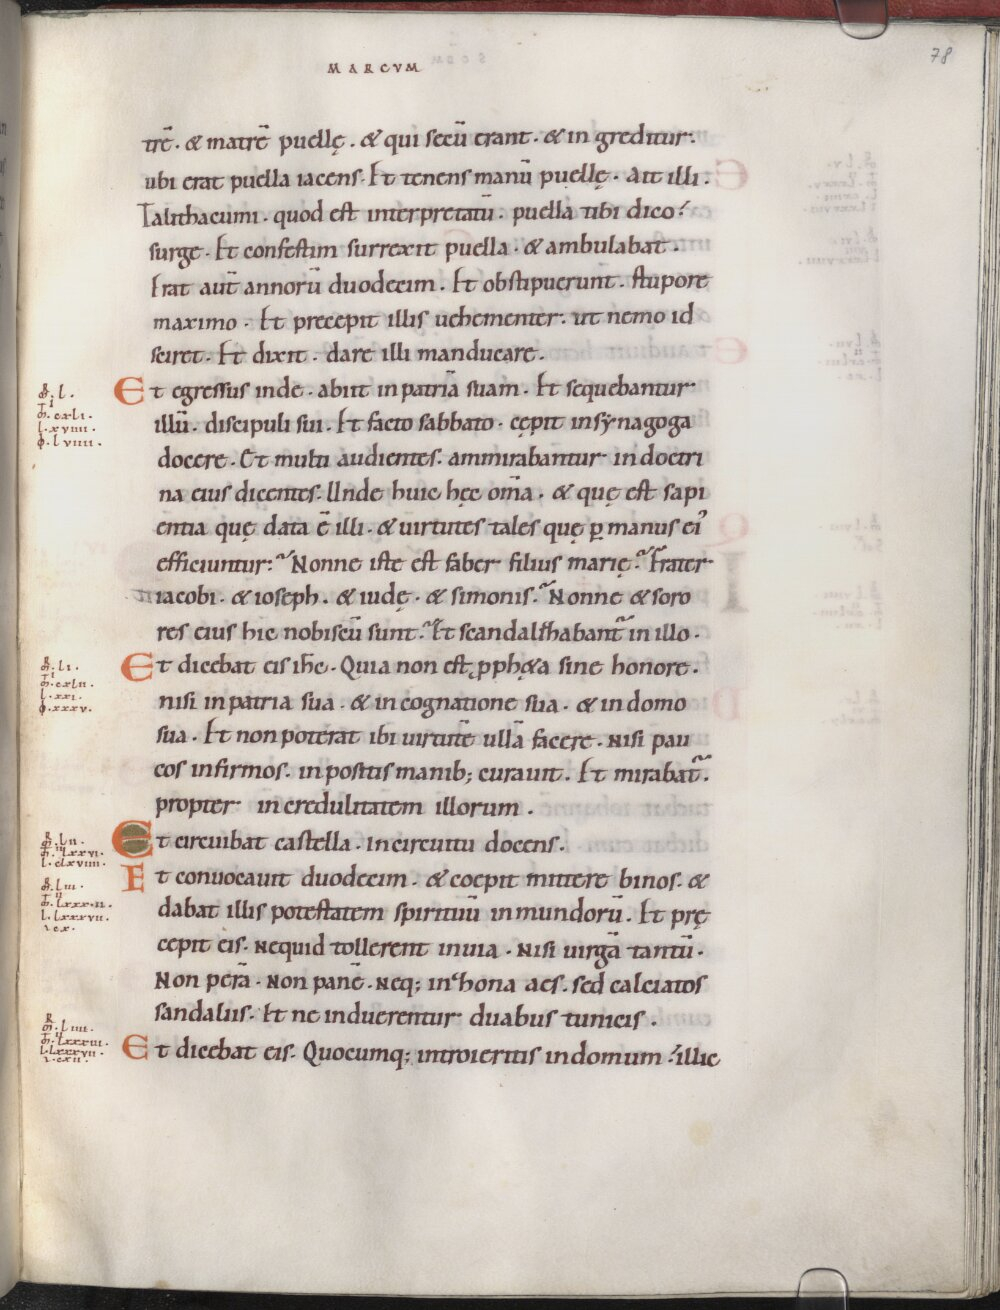 MARCVM
78
trē. & matrē puellę. & qui secū erant. & in greditur.
ubi erat puella iacens. Et tenens manū puellę. Ait illi.
Talithacumi. quod est interpretatū. puella tibi dico.
surge. Et confestim surrexit puella. & ambulabat.
Erat aut̄ annorū duodecim. Et obstipuerunt. stupore
maximo. Et precepit illis uehementer. ut nemo id
sciret. Et dixit. dare illi manducare.
Et egressus inde. abiit in patriā suam. Et sequebantur
illū. discipuli sui. Et facto sabbato. cępit in synagoga
docere. Et multi audientes. ammirabantur in doctri
na eius dicentes. Unde huic hęc om̄a. & quę est sapi
entia quę data ē illi. & uirtutes tales quę ꝑ manus ei᾿
efficiuntur. Nonne iste est faber filius marię. Frater
iacobi. & ioseph. & iudę. & simonis. Nonne & soro
res eius hic nobiscū sunt. Et scandalizabant̄ in illo.
Et dicebat eis ih̄c. Quia non est ꝓph&a sine honore.
nisi in patria sua. & in cognatione sua. & in domo
sua. Et non poterat ibi uirtutē ullā facere. Nisi pau
cos infirmos. in positis manib; curauit. Et mirabat̄.
propter in credulitatem illorum.
Et circuibat castella. in circuitu docens.
Et conuocauit duodecim. & coepit mittere binos. &
dabat illis potestatem spirituū inmundorū. Et prę
cepit eis. Nequid tollerent in uia. Nisi uirgā tantū.
Non perā. Non panē. Neq; in zona aes. sed calciatos
sandaliis. Et ne induerentur duabus tunicis.
Et dicebat eis. Quocumq; introieritis in domum. illic